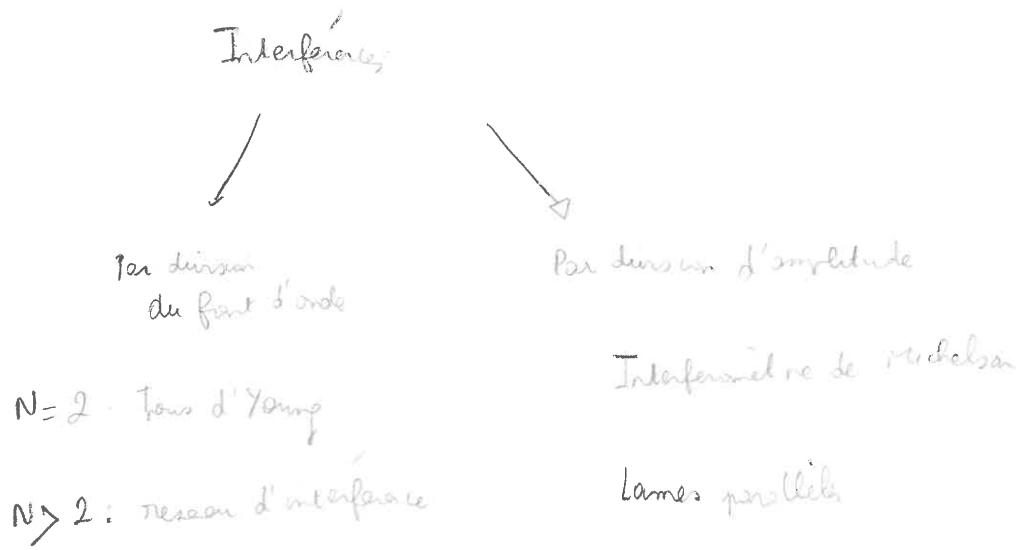 Interférences
Par division
du front d'onde
N = 2 : trous d'Young
N > 2 : reseau d'interférence
Par division d'amplitude
Interferomètre de Michelson
Lames parallèles